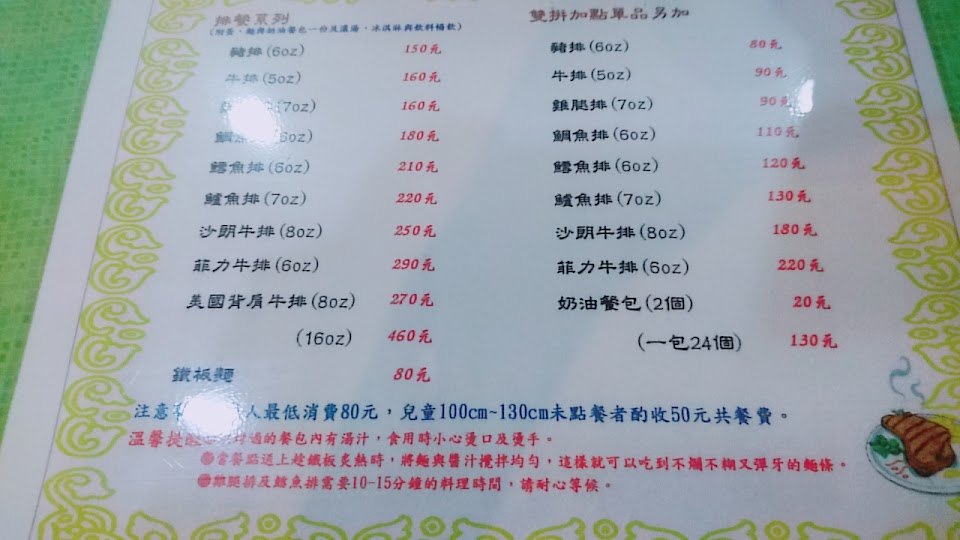 排餐系列
(附蛋、麵與奶油餐包一份及濃湯、冰淇淋與飲料暢飲)
豬排(6oz) 150元
牛排(5oz) 160元
(7oz) 160元
鯛魚(6oz) 180元
鱈魚排(6oz) 210元
鱸魚排(7oz) 220元
沙朗牛排(8oz) 250元
菲力牛排(6oz) 290元
美國背肩牛排(8oz) 270元
(16oz) 460元
鐵板麵 80元
雙拼加點單品另加
豬排(6oz) 80元
牛排(5oz) 90元
雞腿排(7oz) 90元
鯛魚排(6oz) 110元
鱈魚排(6oz) 120元
鱸魚排(7oz) 130元
沙朗牛排(8oz) 180元
菲力牛排(6oz) 220元
奶油餐包(2個) 20元
(一包24個) 130元
注意 人最低消費80元，兒童100cm~130cm未點餐者酌收50元共餐費。
溫馨提醒 的餐包內有湯汁，食用時小心燙口及燙手。
當餐點送上趁鐵板炙熱時，將麵與醬汁攪拌均勻，這樣就可以吃到不爛不糊又彈牙的麵條。
雞腿排及鱈魚排需要10-15分鐘的料理時間，請耐心等候。